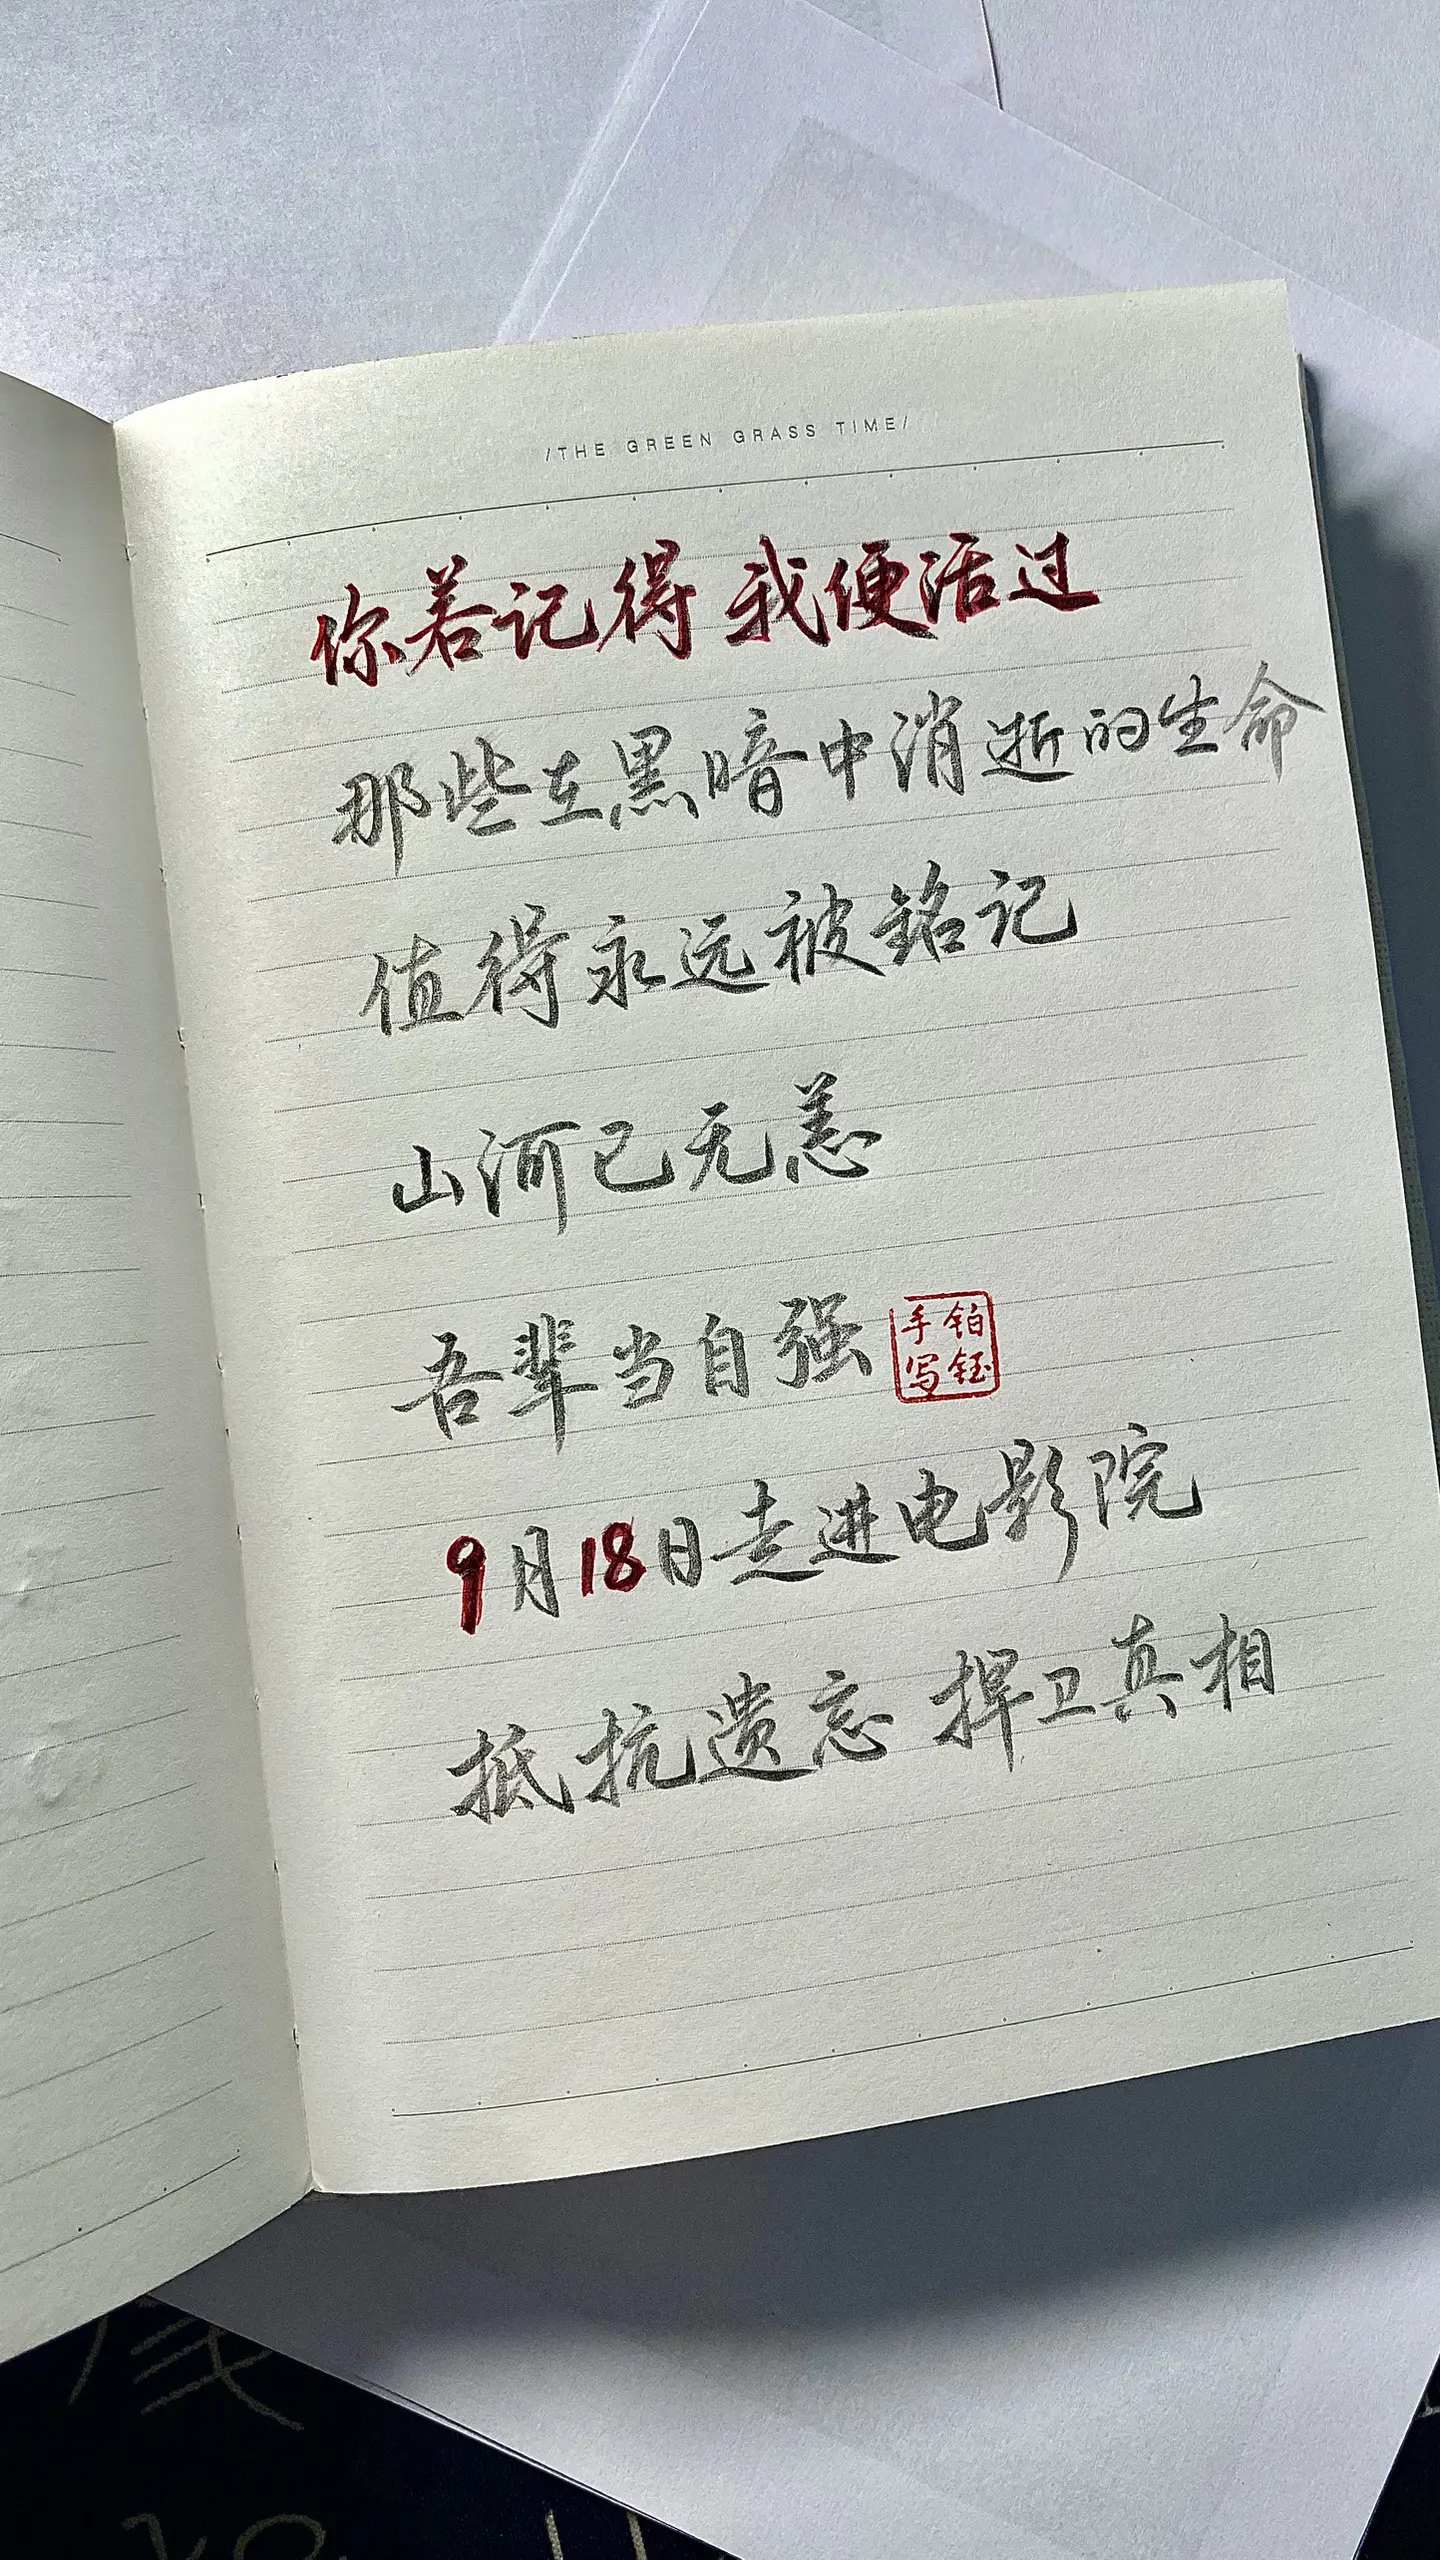 /THE GREEN GRASS TIME/
你若记得 我便活过
那些在黑暗中消逝的生命
值得永远被铭记
山河已无恙
吾辈当自强
铂钰手写
9月18日走进电影院
抵抗遗忘 捍卫真相